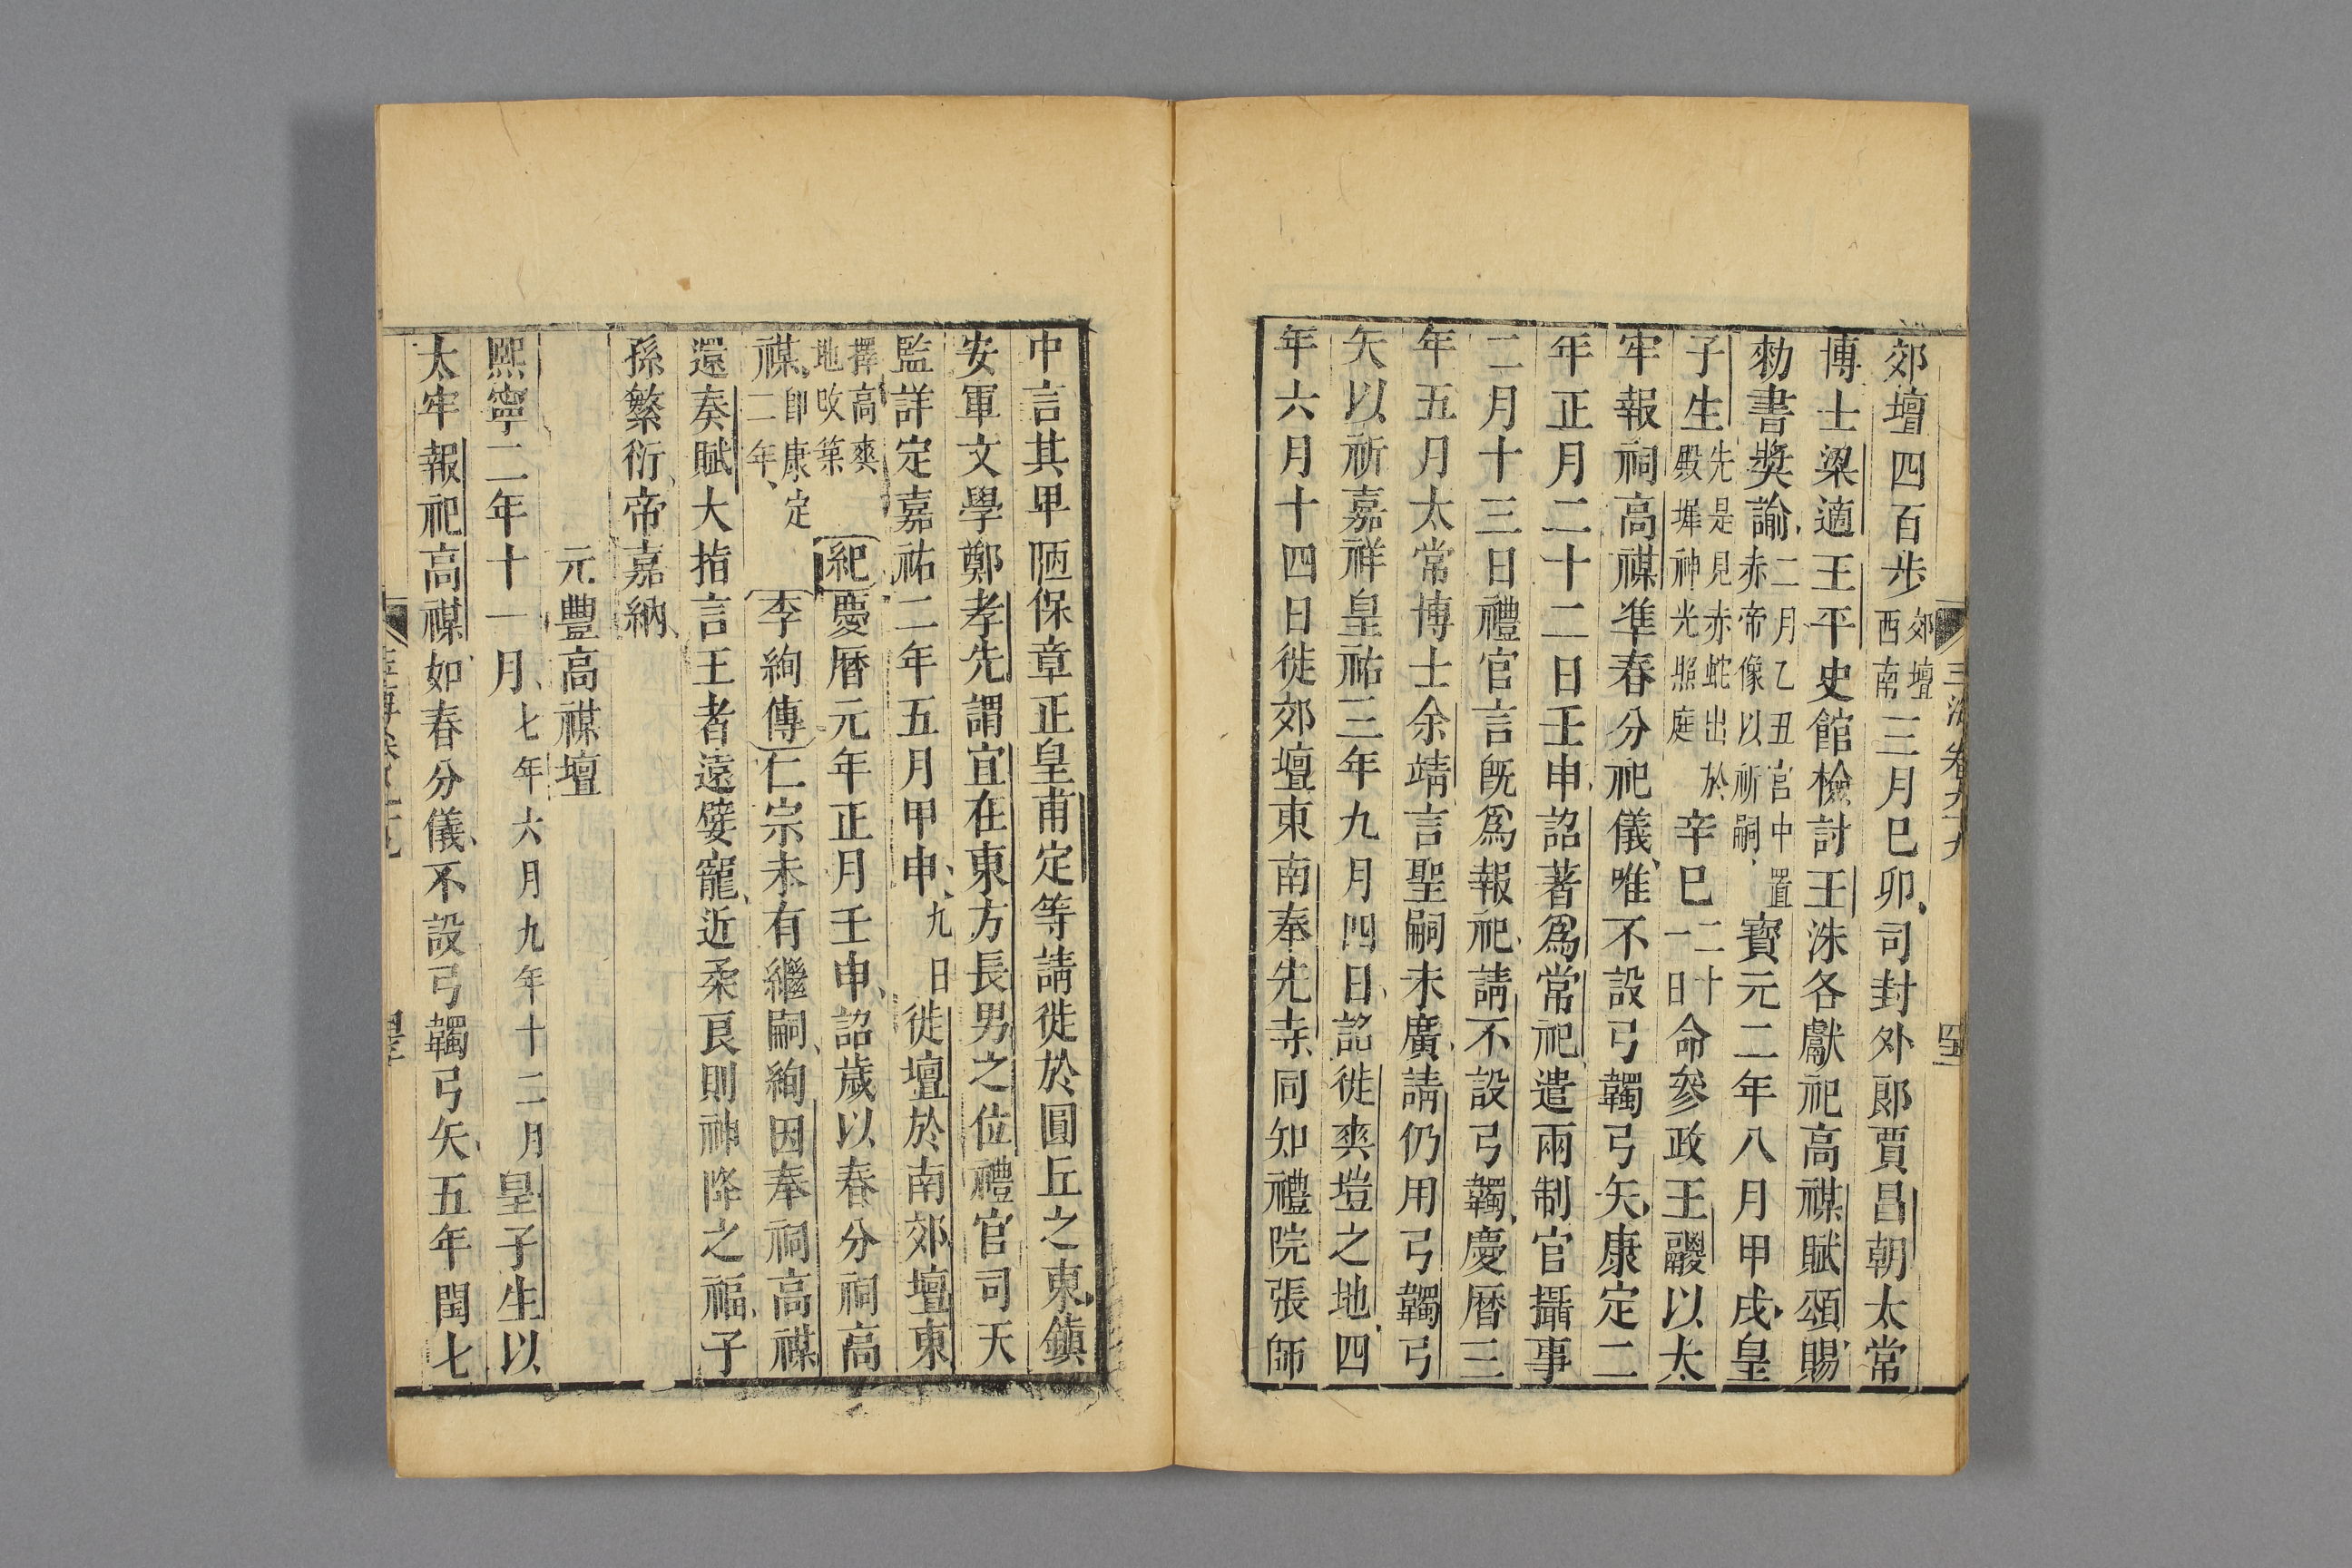 郊壇四百步郊壇西南三月巳卯司封外郞賈昌朝太常
博士梁適王平史館檢討王洙各獻祀高禖賦頌賜
勑書獎諭二月乙丑宮中置赤帝像以祈嗣寶元二年八月甲戌皇
子生先是見赤蛇出於殿墀神光照庭辛巳二十一日命參政王鬷以太
牢報祠高禖準春分祀儀唯不設弓韣弓矢康定二
年正月二十二日壬申詔著爲常祀遣兩制官攝事
二月十三日禮官言旣爲報祀請不設弓韣慶曆三
年五月太常博士余靖言聖嗣未廣請仍用弓韣弓
矢以祈嘉祥皇祐三年九月四日詔徙爽塏之地四
年六月十四日徙郊壇東南奉先寺同知禮院張師
中言其卑陋保章正皇甫定等請徙於圓丘之東鎭
安軍文學鄭孝先謂宜在東方長男之位禮官司天
監詳定嘉祐二年五月甲申九日徙壇於南郊壇東
擇高爽地改築紀慶曆元年正月壬申詔歲以春分祠高
禖卽康定二年李絢傳仁宗未有繼嗣絢因奉祠高禖
還奏賦大指言王者遠嬖寵近柔良則神降之福子
孫繁衍帝嘉納
元豐高禖壇
熙寧二年十一月七年六月九年十二月皇子生以
太牢報祀高禖如春分儀不設弓韣弓矢五年閏七